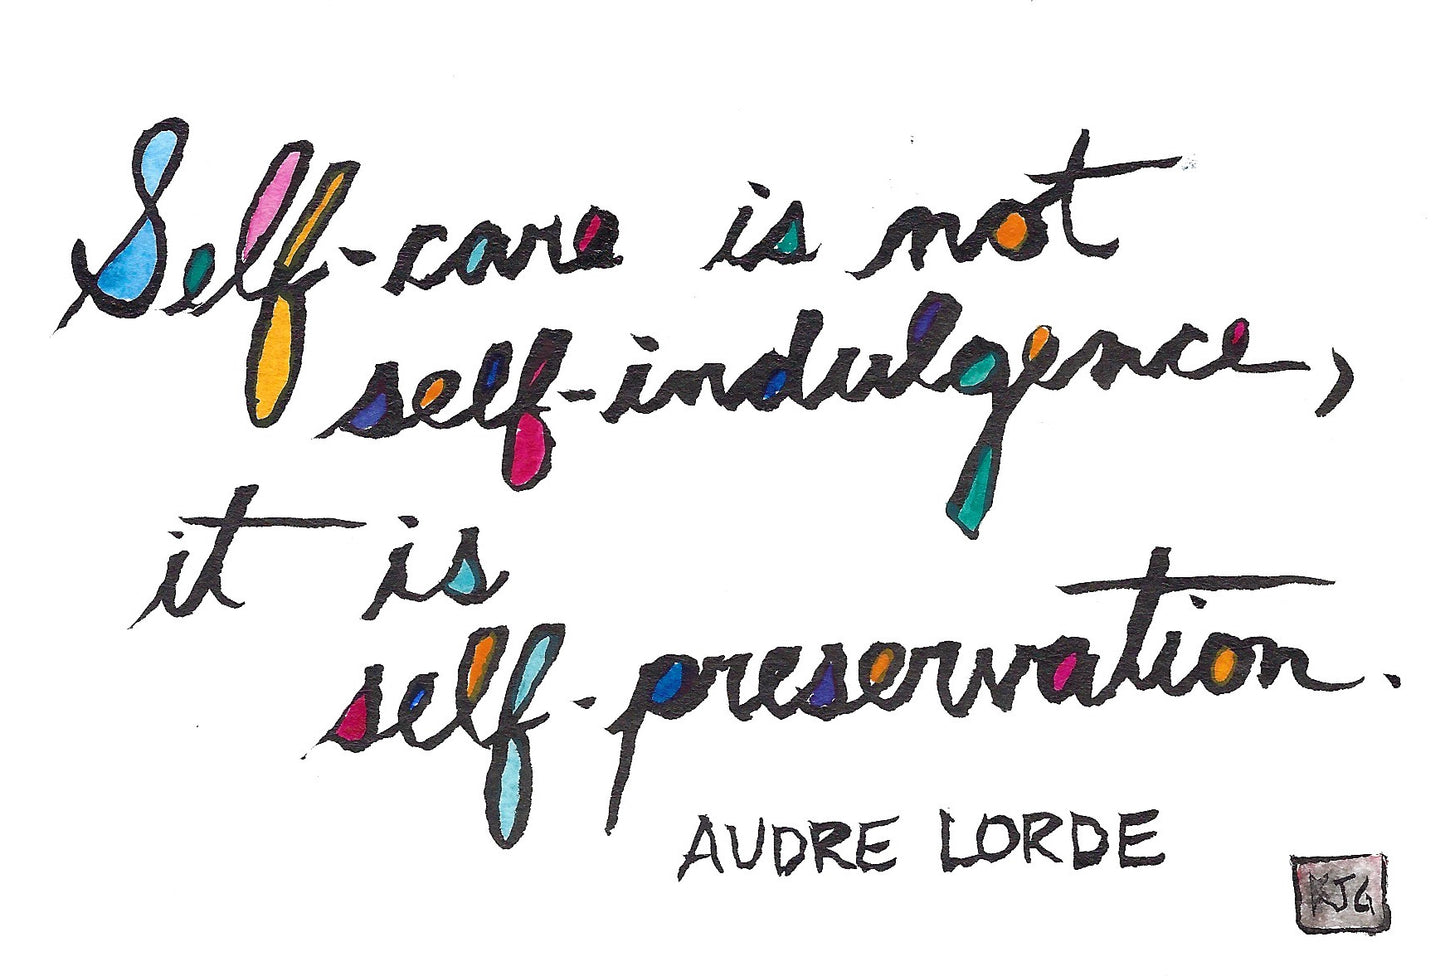 Self-care is not
self-indulgence,
it is
self-preservation.
AUDRE LORDE
KJG